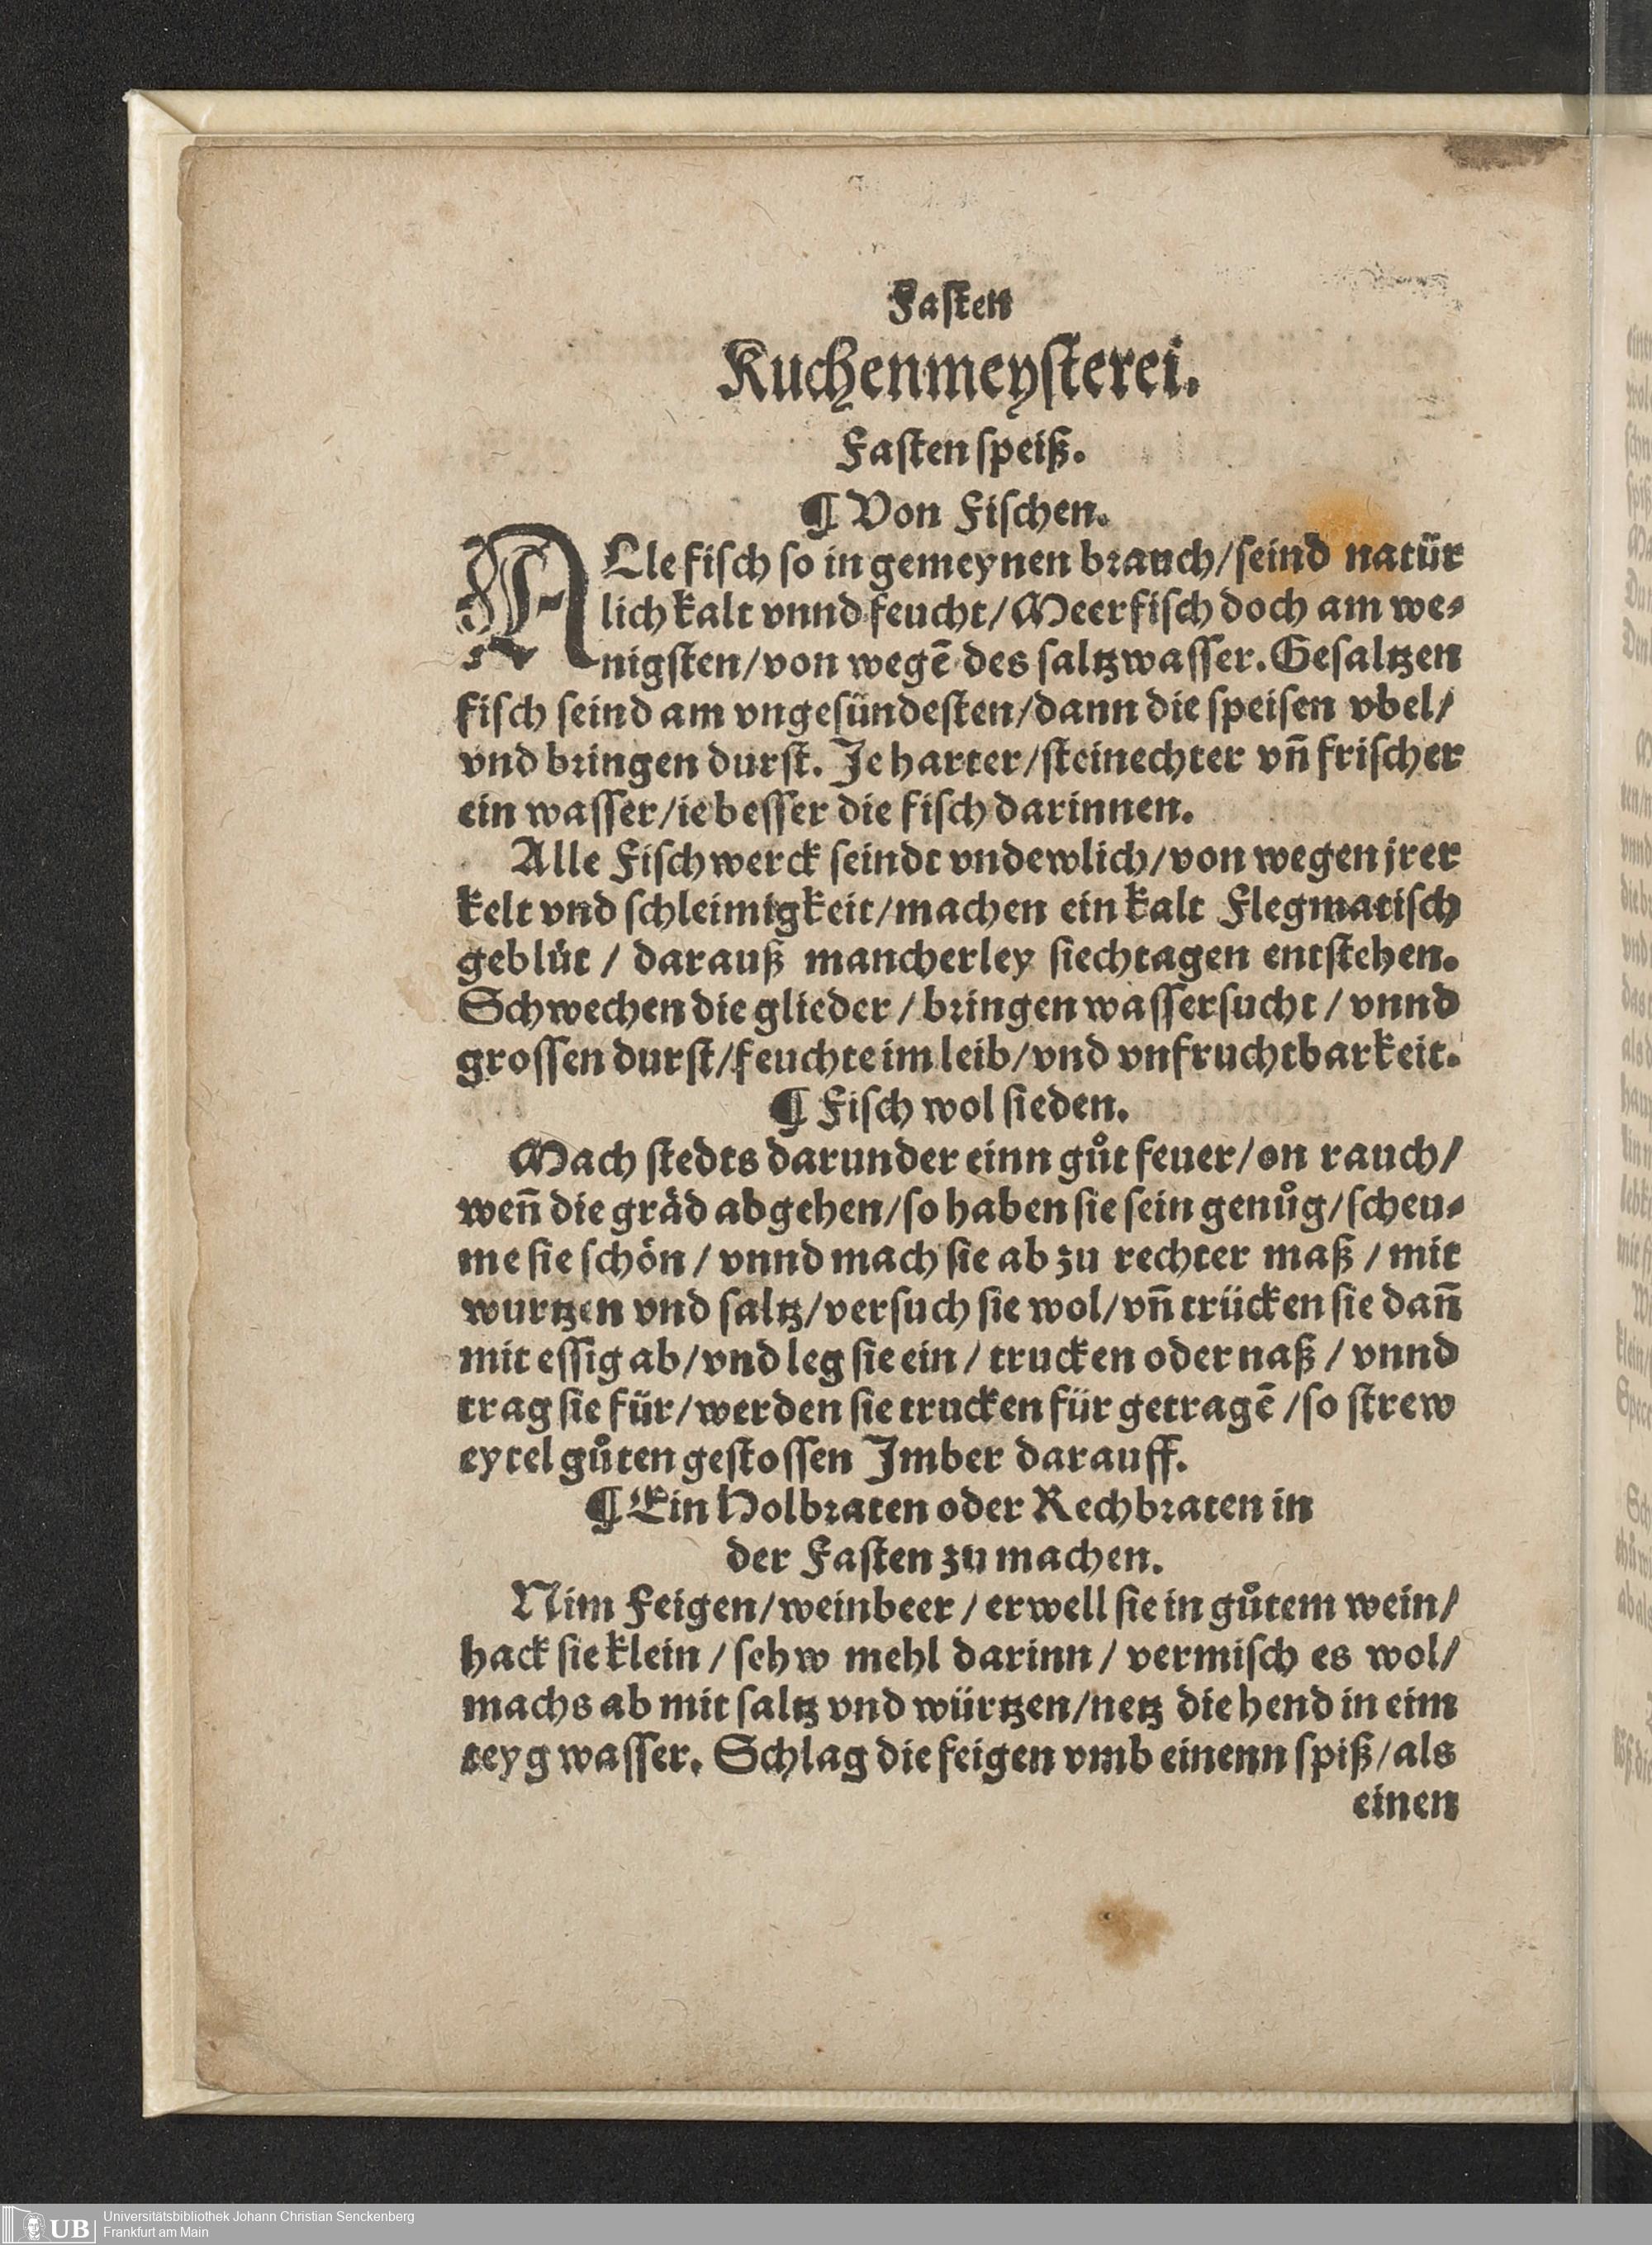 Fasten
Kuchenmeysterei.
Fasten speiß.
¶ Von Fischen.
ALle fisch so in gemeynen brauch/seind natür
lich kalt vnnd feucht/Meerfisch doch am we⸗
nigsten/von wegē des saltzwasser. Gesaltzen
fisch seind am vngesündesten/dann die speisen vbel/
vnd bringen durst. Je harter/steinechter vn̄ frischer
ein wasser/ie besser die fisch darinnen.
Alle Fischwerck seindt vndewlich/von wegen jrer
kelt vnd schleimigkeit/machen ein kalt Flegmatisch
geblüt / darauß mancherley siechtagen entstehen.
Schwechen die glieder / bringen wassersucht / vnnd
grossen durst/feuchte im leib/vnd vnfruchtbarkeit.
¶ Fisch wol sieden.
Mach stedts darunder einn gůt feuer/on rauch/
wen̄ die gräd abgehen/so haben sie sein genůg/scheu⸗
me sie schön / vnnd mach sie ab zu rechter maß / mit
wurtzen vnd saltz/versuch sie wol/vn̄ trücken sie dan̄
mit essig ab/vnd leg sie ein / trucken oder naß / vnnd
trag sie für/werden sie trucken für getragē /so strew
eytel gůten gestossen Jmber darauff.
¶ Ein Holbraten oder Rechbraten in
der Fasten zu machen.
Nim Feigen/weinbeer / erwell sie in gůtem wein/
hack sie klein / sehw mehl darinn / vermisch es wol/
machs ab mit saltz vnd würtzen/netz die hend in eim
teyg wasser. Schlag die feigen vmb einenn spiß/als
einen
UB
Universitätsbibliothek Johann Christian Senckenberg
Frankfurt am Main